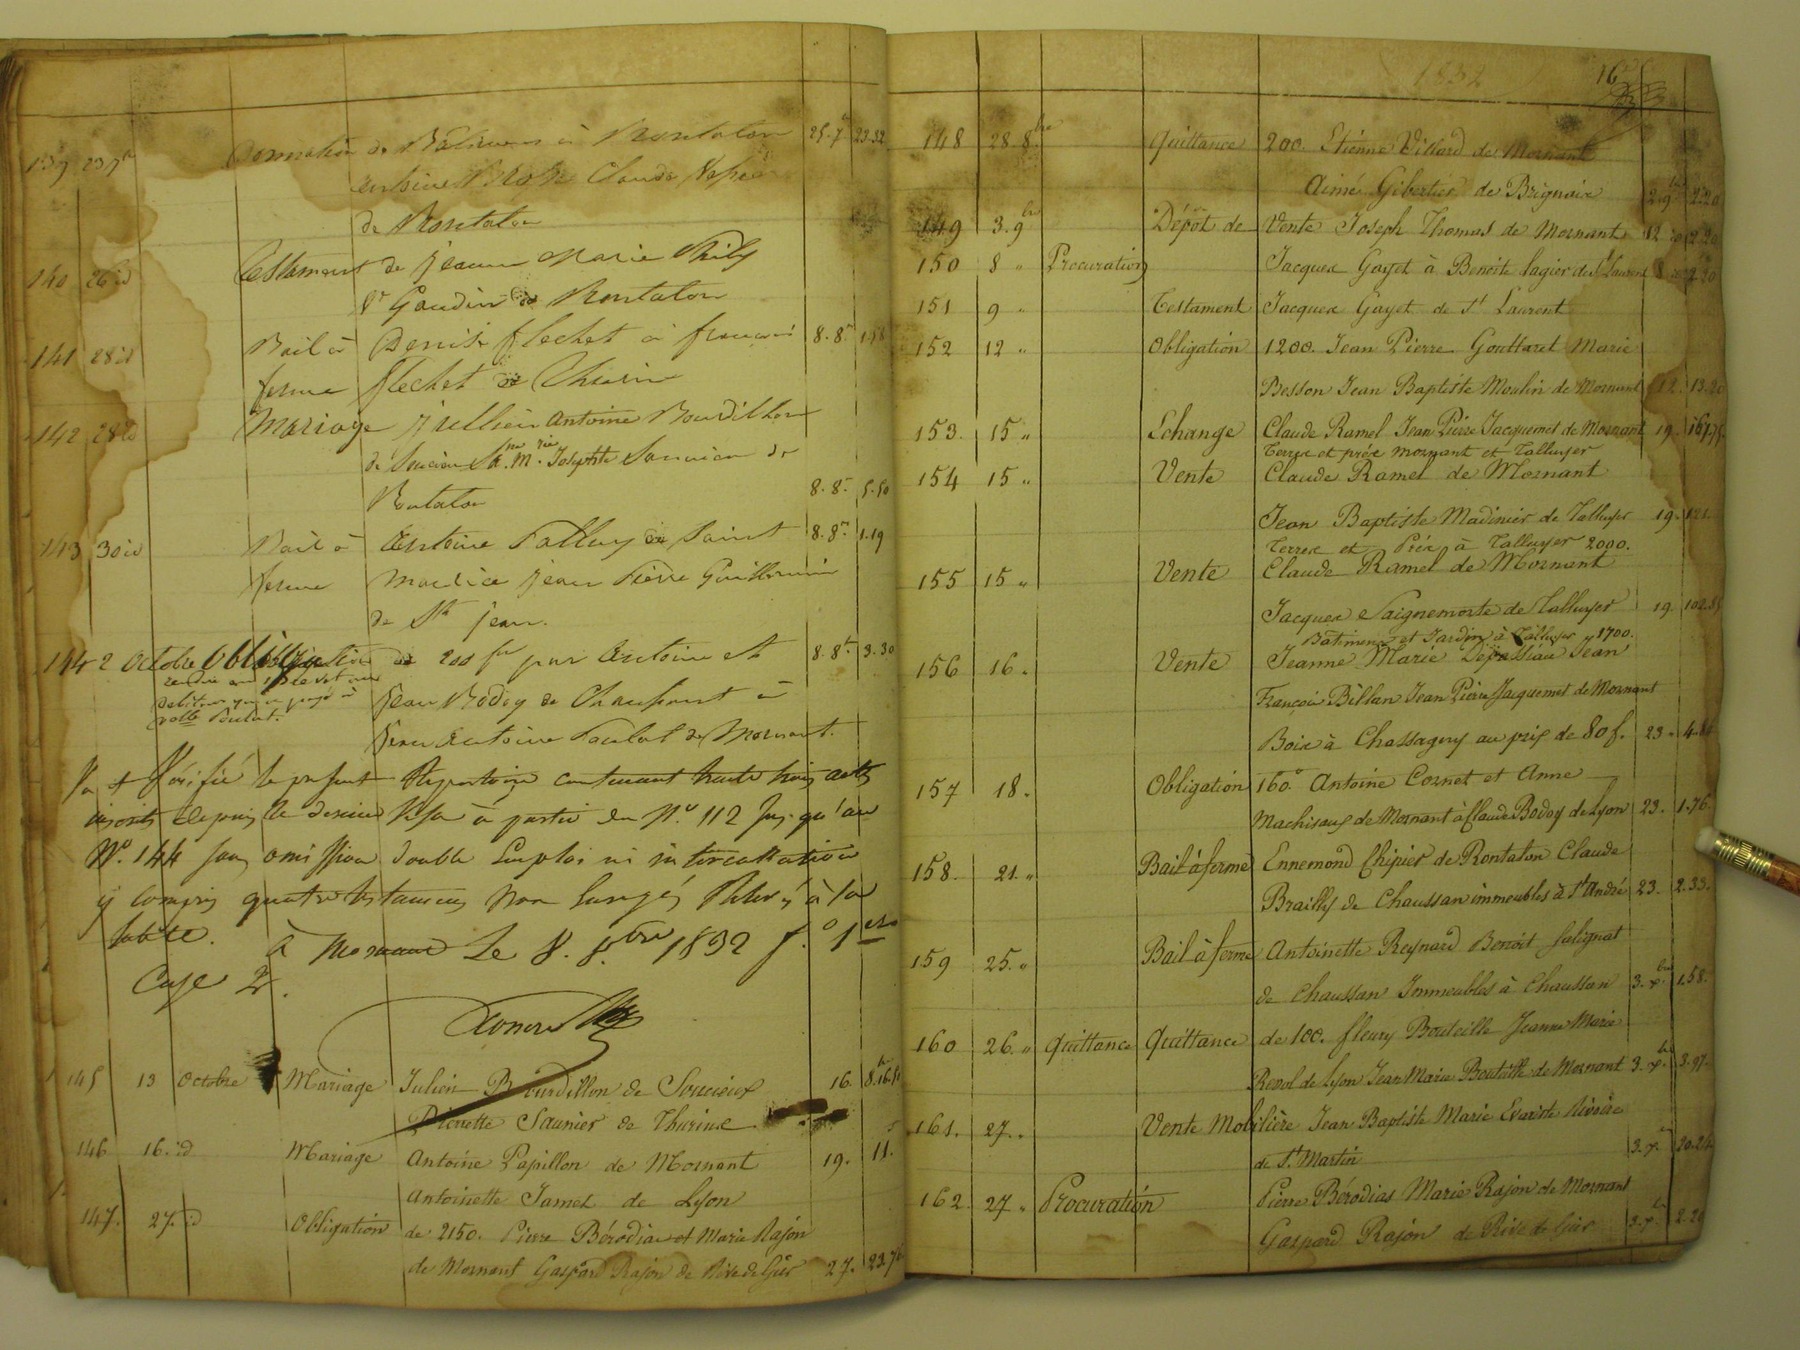 139 23 7bre Donnation de Bâtiments à Rontalon 25.7bre 23.32
Antoinette Claude
de Rontalon
140 26 id Testament de Jeanne Marie
Vve Gaudin de Rontalon
141 28 id Bail à Denis Flechet à François 8.8bre
ferme Flechet de Thurin
142 28 id Mariage Jullien Antoine Bourdillon
de Soucieu & M.rie Josephte Saunier de
Rontalon 8.8bre 5.50
143 30 id Bail à Antoine Palluy de Saint 8.8bre 1.19
ferme Maurice Jean Pierre Guillermin
de St Jean.
144 2 Octobre Obligation de 200 fr par Antoine et 8.8bre 3.30
Jean Bodoy de Chaussant à
Jean Antoine Poulat de Mornant.
Vu & Vérifié le présent Répertoire contenant trente trois actes
inscrits depuis le dernier Visa à partir du N.o 112 Jusqu'au
N.o 144 sans omission double Emploi ni intercallation
y compris quatre testamens non Enregés Relevés à la
table.
à Mornant Le 8. 8.bre 1832 f.o 1er
Case 2.
145 13 Octobre Mariage Julien Bourdillon de Soucieux 16. 8bre 16.50
Pierrette Saunier de Thurins
146 16. id Mariage Antoine Papillon de Mornant 19. 11.
Antoinette Jamet de Lyon
147. 27. id Obligation de 2150. Pierre Bérodias et Marie Rajon
de Mornant Gaspard Rajon de Rive de Gier 27. 23.7
1832 16
148 28.8bre Quittance 200. Etienne Villard de Mornant
Aimé Gibertier de Brignais 2.9bre 2.20
149 3.9bre Dépôt de Vente Joseph Thomas de Mornant 12 2.20
150 8 " Procuration Jacques Gayet à Benoite Lagier de St Laurent 8 2.20
151 9 " Testament Jacques Gayet de St Laurent
152 12 " Obligation 1200. Jean Pierre Gouttaret Marie
Besson Jean Baptiste Moulin de Mornant 12. 13.20
153. 15 " Echange Claude Ramel Jean Pierre Jacquemet de Mornant 19. 167.75
Terres et prés Mornant et Talluyer
154 15 " Vente Claude Ramel de Mornant
Jean Baptiste Madinier de Talluyer 19. 121.
Terres et Prés à Talluyer 2000.
155 15 " Vente Claude Ramel de Mornant
Jacques Saignemorte de Talluyer 19. 102.85
Bâtimens et Jardin à Talluyer 1700.
156 16. Vente Jeanne Marie Depassiau Jean
François Billan Jean Pierre Jacquemet de Mornant
Bois à Chassagny au prix de 80 f. 23. 4.84
157 18. Obligation 160. Antoine Cornet et Anne
Machisaux de Mornant à Claude Bodoy de Lyon 23. 1.76.
158. 21. " Bail à ferme Ennemond Chipier de Rontalon Claude
Brailly de Chaussan immeubles à St André 23. 2.33.
159 25. " Bail à ferme Antoinette Reynard Benoit Salignat
de Chaussan Immeubles à Chaussan 3. Xbre 1.58.
160 26. " Quittance Quittance de 100. Fleury Bouteille Jeanne Marie
Revol de Lyon Jean Marie Bouteille de Mornant 3. Xbre 3.97
161. 27. " Vente Mobilière Jean Baptiste Marie Evariste Rivoire
de St Martin 3. Xbre 20.24
162. 27 " Procuration Pierre Bérodias Marie Rajon de Mornant
Gaspard Rajon de Rive de Gier 3. Xbre 2.20